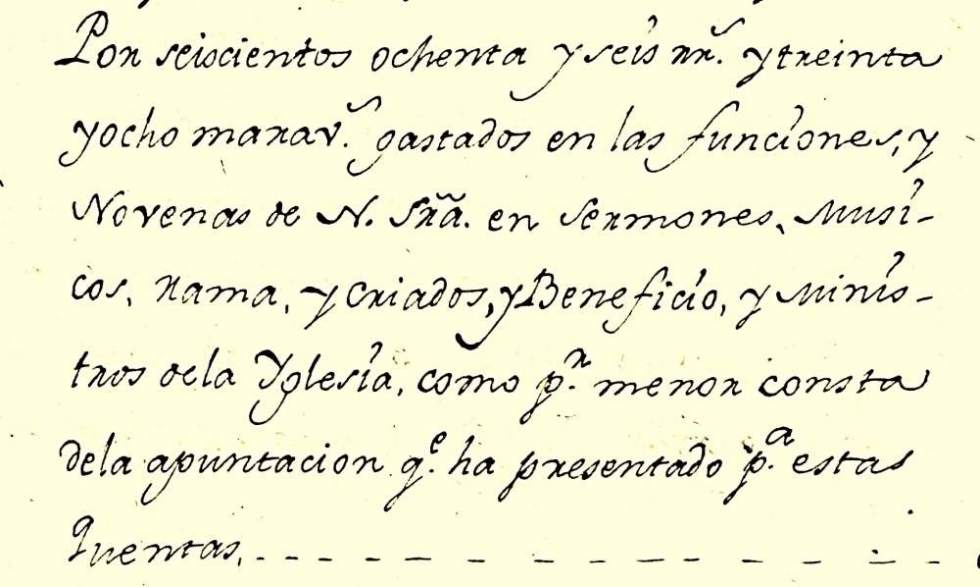 Por seiscientos ochenta y seis rr.ˢ y treinta
y ocho marav.ˢ gastados en las funciones, y
Novenas de N. Srã. en Sermones, Musi-
cos, rama, y Criados, y Beneficio, y Minis-
tros de la Yglesia, como p.ʳ menor consta
de la apuntacion q.ᵉ ha presentado p.ᵃ estas
Quentas, - - - - - - - - - - - - -